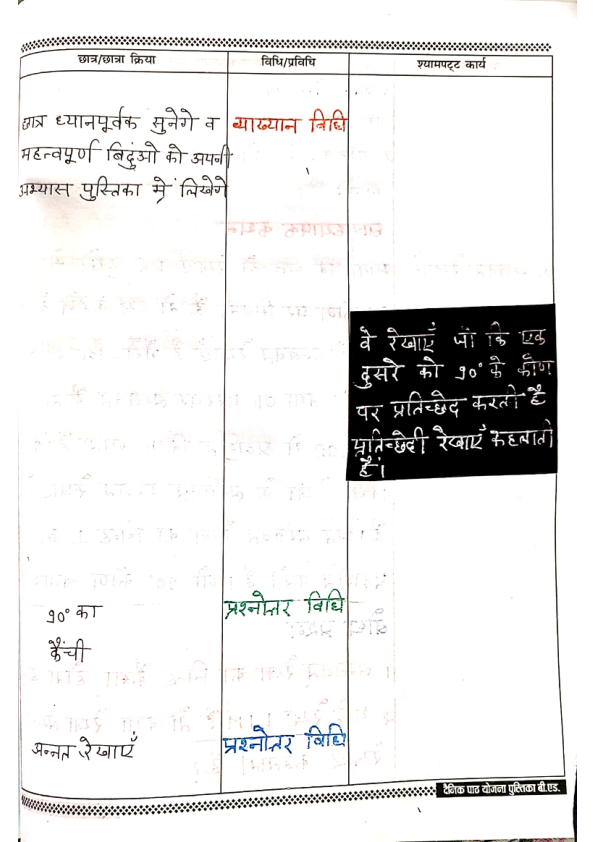 छात्र/छात्रा क्रिया
विधि/प्रविधि
श्यामपट्ट कार्य
छात्र ध्यानपूर्वक सुनेगे व
महत्वपूर्ण बिदुंओ को अपनी
अभ्यास पुस्तिका में लिखेगे
व्याख्यान विधि
वे रेखाएँ जो कि एक
दुसरे को 90° के कोण
पर प्रतिच्छेद करती है
प्रतिच्छेदी रेखाएँ कहलाती
है।
90° का
कैंची
प्रश्नोत्तर विधि
अन्नत रेखाएँ
प्रश्नोत्तर विधि
दैनिक पाठ योजना पुस्तिका बी.एड.